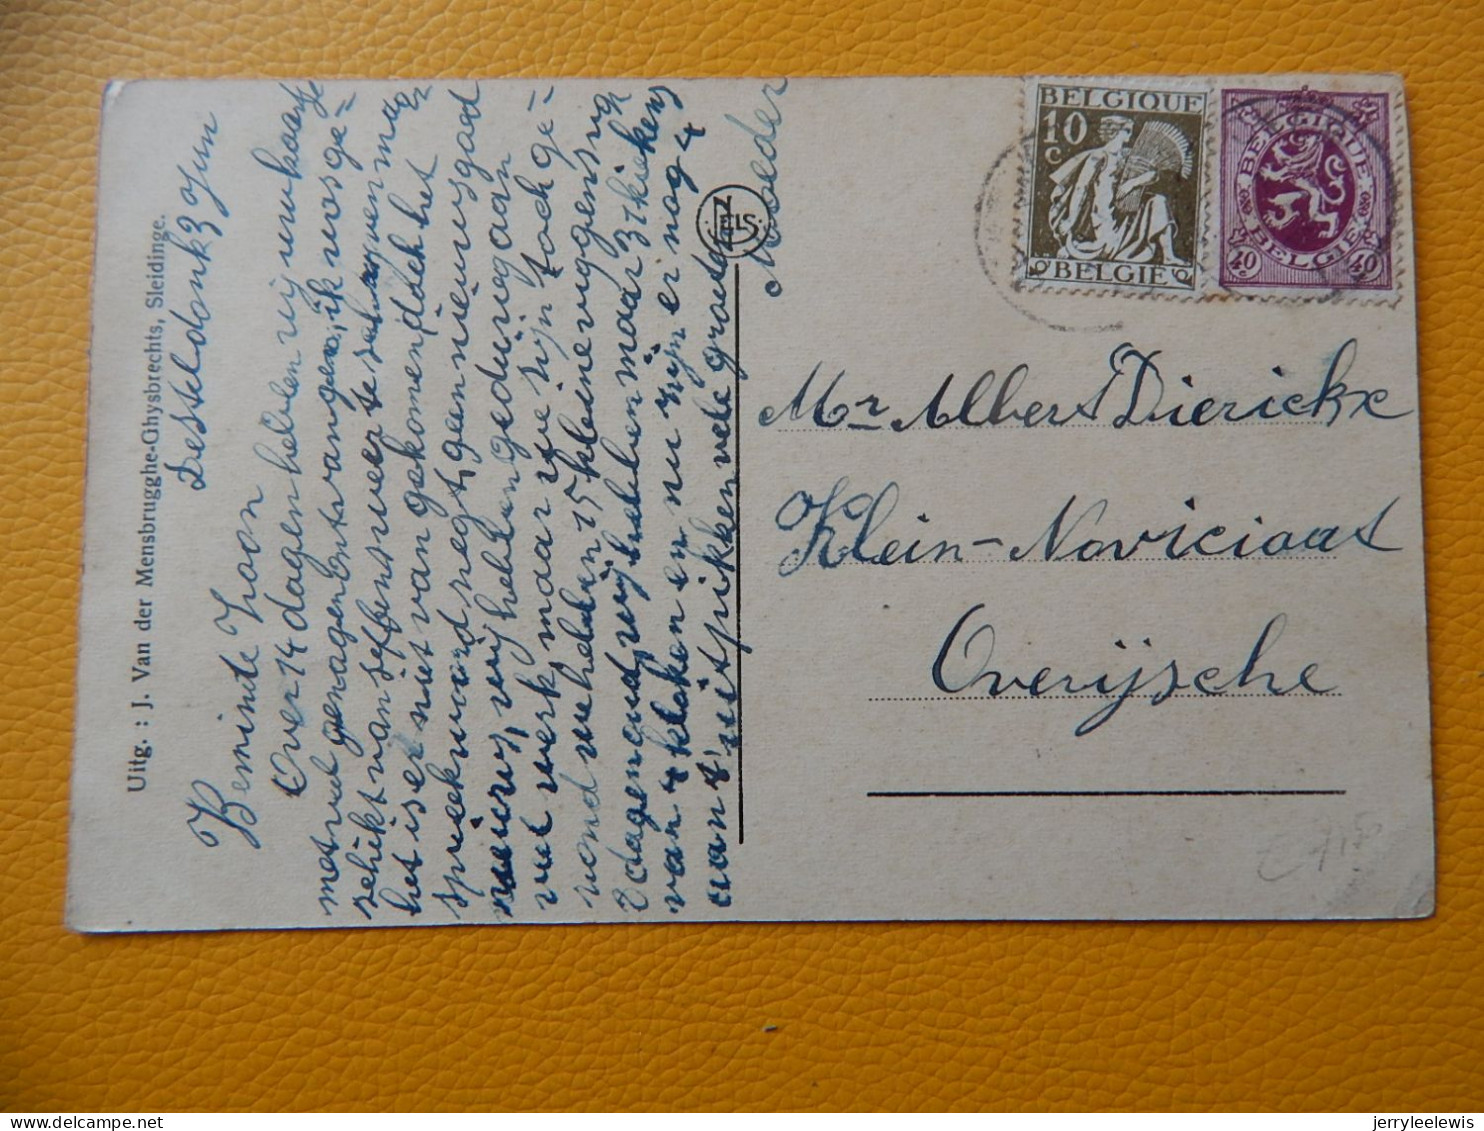 Uitg. : J. Van der Mensbrugghe-Ghysbrechts, Sleidinge.
Desteldonk 3 Jun
Beminte Zoon
Over 14 dagen hebben wij uw kaartje
met veel genoegen ontvangen, ik was ge=
schikt van seffens weer te schrijven maar
het is er niet van gekomen, dat het
spreekwoord zegt, geen nieuws goed
nieuws, wij hebben gedurig aan
veel werk, maar we zijn toch ge=
zond we hebben 15 kleine viggens van
2 dagen oud, wij hebben maar 3 kiekens
van 4 kloken en nu zijn er nog 4
aan 't uitpikken vele groeten
Moeder
NELS
BELGIQUE
10 c
BELGIE
BELGIQUE
BELGIE
40 c 40 c
Mr Albert Dierickx
Klein-Noviciaat
Overijsche
jerryleelewis